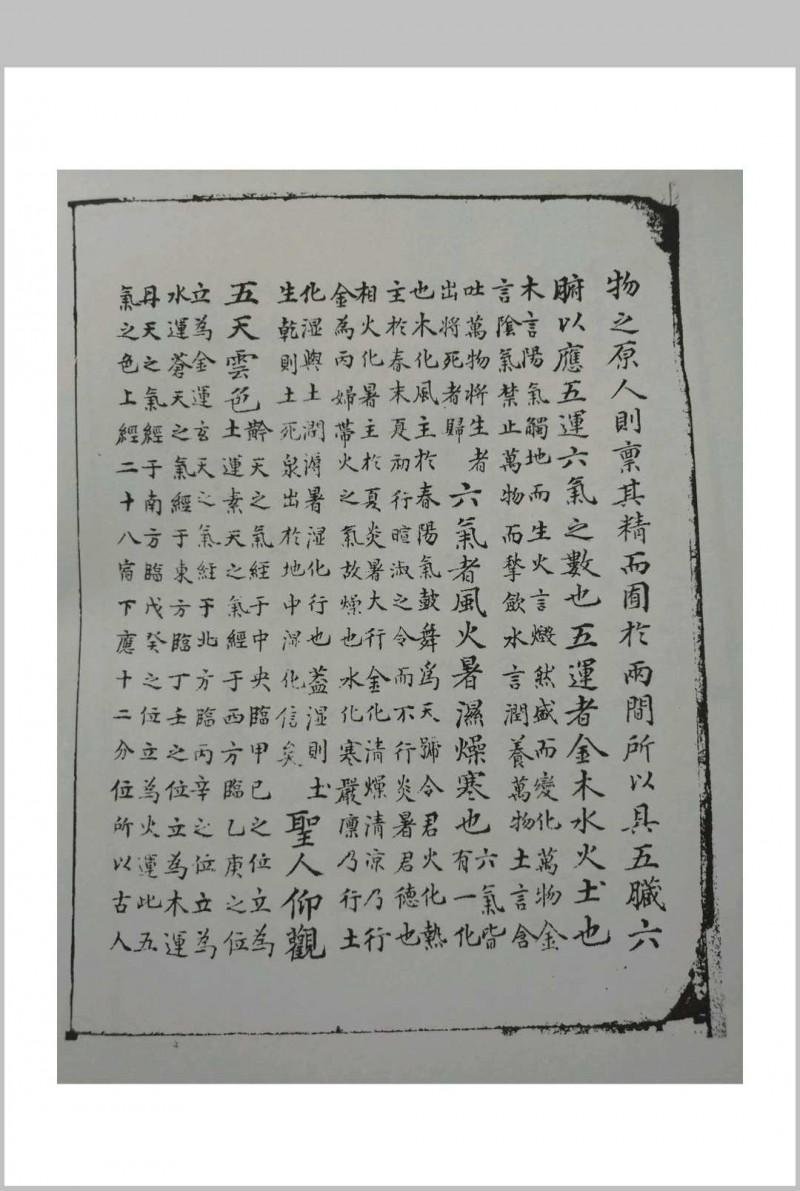 物之原人則稟其精而囿於兩間所以具五臟六
腑以應五運六氣之數也五運者金木水火土也
木言陽氣觸地而生火言燬然盛而變化萬物金
言陰氣禁止萬物而揫斂水言潤養萬物土言含
吐萬物將生者
出將死者歸
六氣者風火暑濕燥寒也
六氣皆
有一化
也木化風主於春陽氣鼓舞為天號令君火化熱
主於春末夏初行暄淑之令而不行炎暑君德也
相火化暑主於夏炎暑大行金化清燥清凉乃行
金為丙婦帶火之氣故燥也水化寒嚴凛乃行土
化湿與土潤溽暑湿化行也蓋湿則土
生乾則土死泉出於地中湿化信矣
聖人仰觀
五天雲色
黅天之氣經于中央臨甲己之位立為
土運素天之氣經于西方臨乙庚之位
立為金運玄天之氣経于北方臨丙辛之位立為
水運蒼天之氣經于東方臨丁壬之位立為木運
丹天之氣經于南方臨戊癸之位立為火運此五
氣之色上經二十八宿下應十二分位所以古人